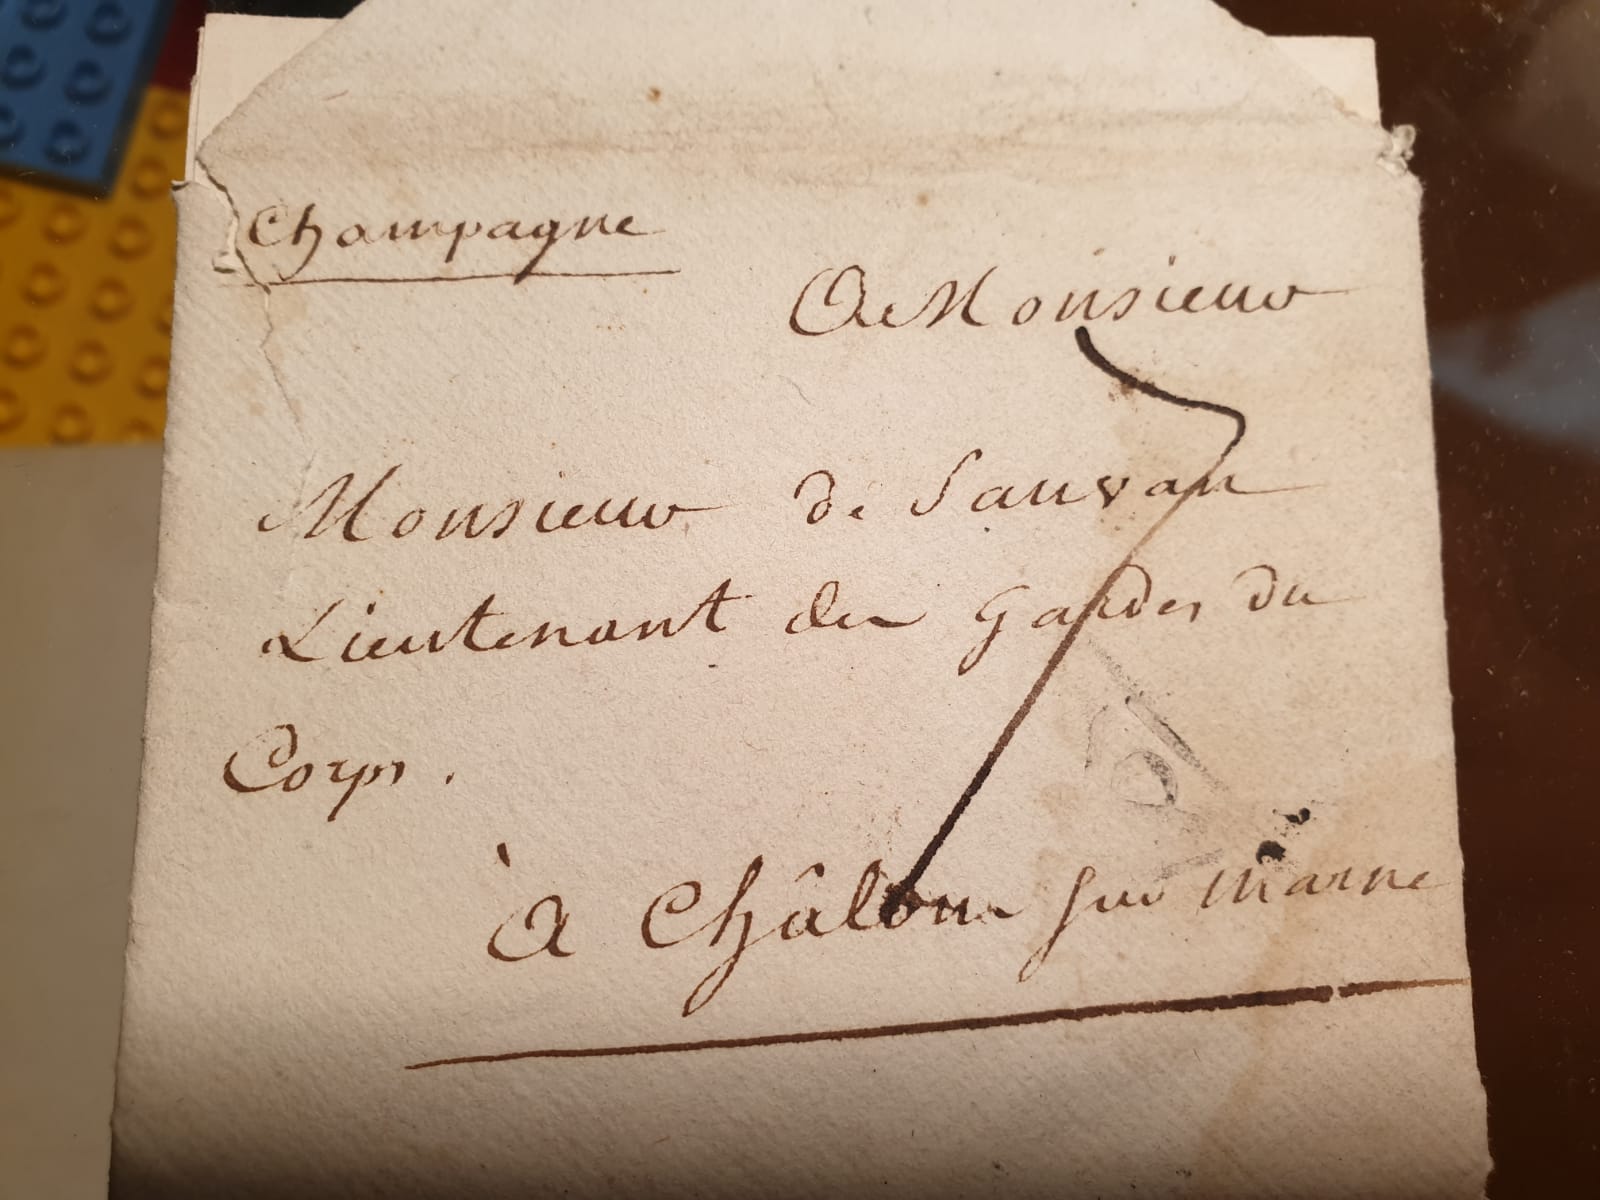 Champagne
A Monsieur
Monsieur de Sauvan
Lieutenant des Gardes du
Corps.
à Châlons sur marne
7